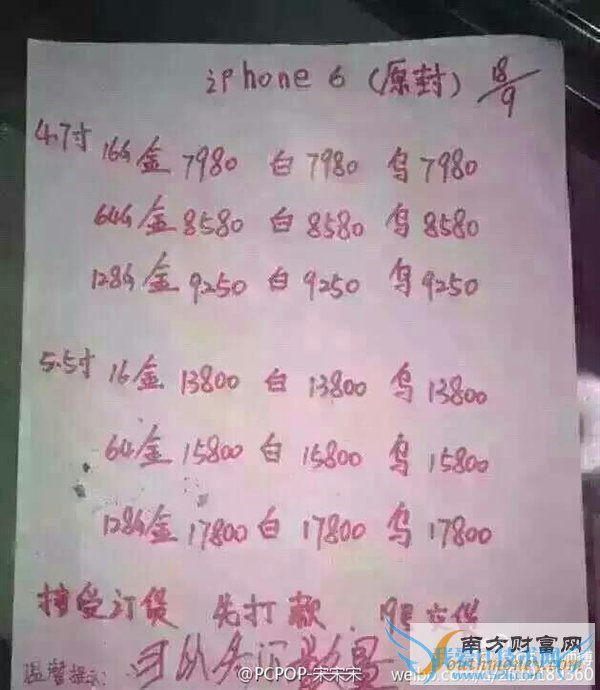 iPhone 6 (原封) 18/9
4.7寸 16G金 7980 白 7980 乌 7980
64G金 8580 白 8580 乌 8580
128G金 9250 白 9250 乌 9250
5.5寸 16金 13800 白 13800 乌 13800
64金 15800 白 15800 乌 15800
128G金 17800 白 17800 乌 17800
接受订货 先打款
温馨提示:
@PCPOP-宋宋宋
南方财富网
outhmoney.com